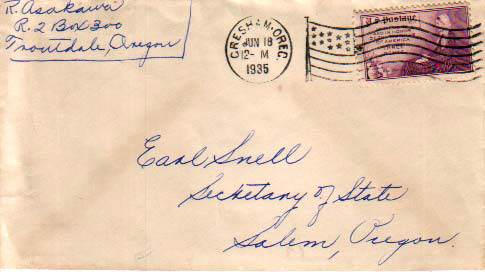 R. Asakawa
R. 2 Box 300
Troutdale, Oregon
GRESHAM, OREG.
JUN 18
12 - M
1935
U.S. Postage
Earl Snell
Secretary of State
Salem, Oregon.